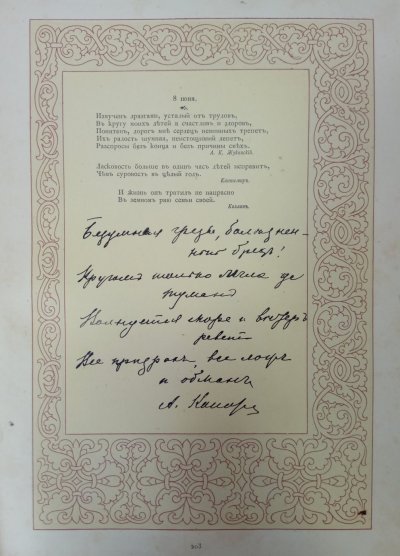 8 июня.
Измученъ дрязгами, усталый отъ трудовъ,
Въ кругу моихъ дѣтей я счастливъ и здоровъ,
Понятенъ, дорогъ мнѣ сердецъ невинныхъ трепетъ,
Ихъ радость шумная, неистощимый лепетъ,
Раздоры безъ конца и безъ причины смѣхъ.
А. К. Жуковскій.
Ласковость больше въ одинъ часъ дѣтей исправитъ,
Чѣмъ суровость въ цѣлой годъ.
Кантемиръ.
И жизнь онъ тратилъ не напрасно
Въ земномъ раю семьи своей.
Козловъ.
Безумныя грезы, болѣзнен-
ный бредъ!
Кругомъ только мгла да
туманъ
Волнуется море и вѣтеръ
реветъ
Все призракъ, все ложь
и обманъ
А.
203